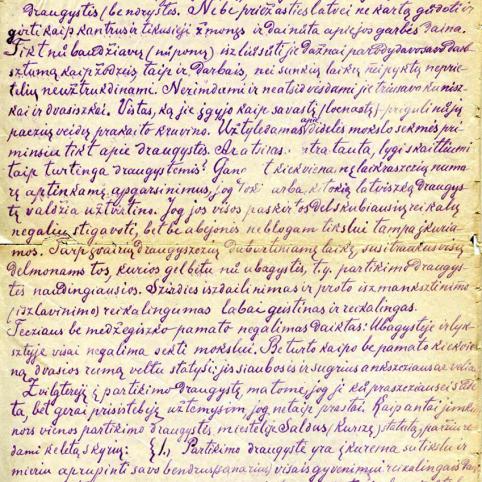 draugystės (bendrystės. Ne be priežasties latvei ne kartą godoti ir
girti kaip kantrus ir tikusieji žmonės ir dainuta apie jos garbės daina.
Tikt nů baudžiavų (nů ponų) iszliůsůti jie dažnai parodydavo savo darb-
sztumą kaip žodžiůs taip ir darbais, nei sunkių laikų nei pyktų neprie-
telių neužtrukdinami. Nerimdami ir neatsidvėsdami jie triůsavo kunisz-
kai ir dvasiszkai. Viską, ką jie įgyjo kaip savastį (locnastę) priguli nů jų
paczių veidų prakaito kruvino. Užtylėdamas apie dideles mokslo sekmes pri-
minsiu tikt apie draugystes. Ar atviras tra tauta, lygi skaitliumi
taip turtenga draugystemis? Gane t kiekviena nų laikraszczių numa-
rę aptinkamę apgarsinimus, jog toki arba kitokią latviszką draugys-
tę valdžia užtvirtino. Jog jos visos paskirtos dėl skubiausių reikalų
negaliu stigavoti, bet be abejonės neblogam tikslui tampa įkuria-
mos. Tarp įvairių draugyszczių dabartiniamę laikę susitraukus visų
delmonams tos, kurios gelbėtu nů ubagystės, t.y. partikimo draugys-
tės naudingiausios. Szirdies iszdailinimas ir proto iszmanksztinimo
(iszlavinimo) reikalingumas labai geistinas ir reikalingas.
Tecziaus be medžegiszko pamato negalimas daiktas: Ubagystėje ir vyk-
sztyje visai negalima sekti mokslui. Be turto kaipo be pamato kiekvie-
ną dvasios rumą veltu statysi: jis siaubos ir sugrius ankszcziaus ar vėliaus.
Žvilgterėję į partikimo draugystę matome, jog ji kůpraszcziausei s
ta, bet gerai prisistebėję užtemysim, jog netaip prastai. Kaip antai jimkim
nors vienos partikimo draugystės miestelije Saldus (Kurszę) statutą, parsiure-
dami keletą skyrių: § 1, Partikimo draugystė yra įkurema su tikslu ir
mieriu aprupinti savo bendrus (panarius) visais gyvenimui reikalingais daig